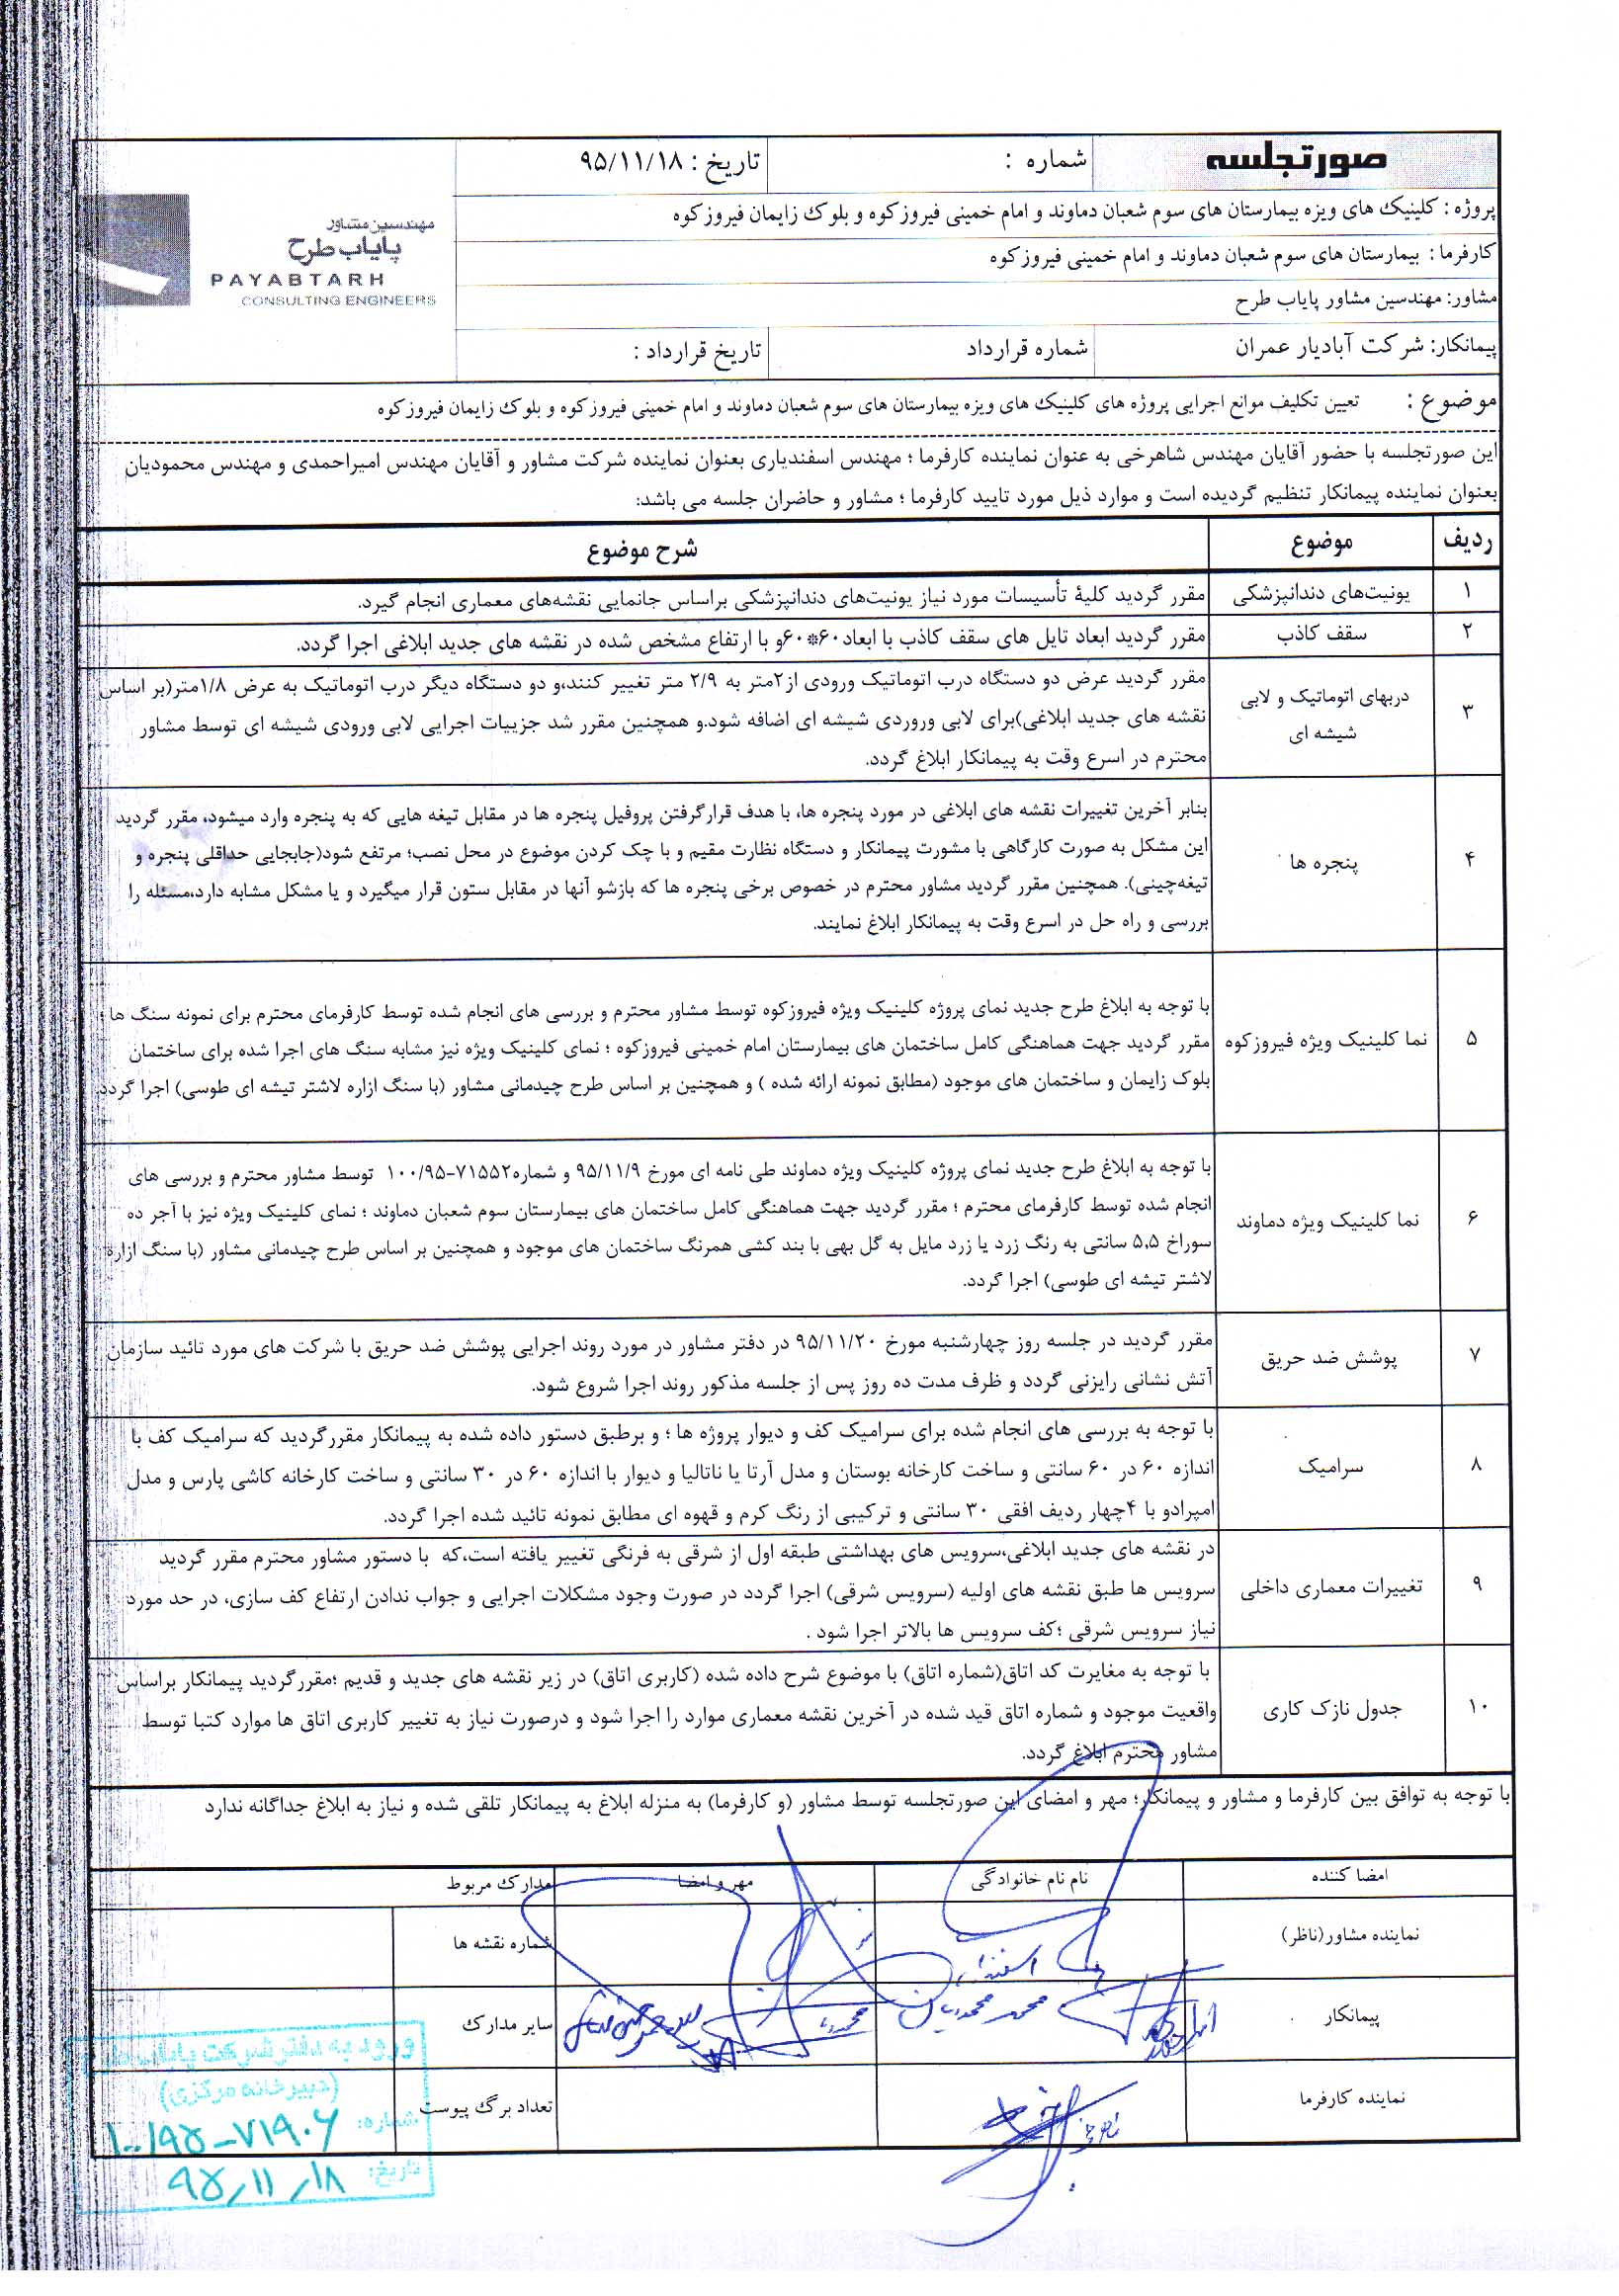 صورتجلسه
شماره :
تاریخ : ۹۵/۱۱/۱۸
پروژه : کلینیک های ویژه بیمارستان های سوم شعبان دماوند و امام خمینی فیروزکوه و بلوک زایمان فیروزکوه
کارفرما : بیمارستان های سوم شعبان دماوند و امام خمینی فیروزکوه
مشاور: مهندسین مشاور پایاب طرح
پیمانکار: شرکت آبادیار عمران
شماره قرارداد
تاریخ قرارداد :
مهندسین مشاور
پایاب طرح
PAYABTARH
CONSULTING ENGINEERS
موضوع : تعیین تکلیف موانع اجرایی پروژه های کلینیک های ویژه بیمارستان های سوم شعبان دماوند و امام خمینی فیروزکوه و بلوک زایمان فیروزکوه
این صورتجلسه با حضور آقایان مهندس شاهرخی به عنوان نماینده کارفرما ؛ مهندس اسفندیاری بعنوان نماینده شرکت مشاور و آقایان مهندس امیراحمدی و مهندس محمودیان
بعنوان نماینده پیمانکار تنظیم گردیده است و موارد ذیل مورد تایید کارفرما ؛ مشاور و حاضران جلسه می باشد:
ردیف موضوع شرح موضوع
۱ یونیت‌های دندانپزشکی مقرر گردید کلیهٔ تأسیسات مورد نیاز یونیت‌های دندانپزشکی براساس جانمایی نقشه‌های معماری انجام گیرد.
۲ سقف کاذب مقرر گردید ابعاد تایل های سقف کاذب با ابعاد۶۰*۶۰و با ارتفاع مشخص شده در نقشه های جدید ابلاغی اجرا گردد.
۳ دربهای اتوماتیک و لابی
شیشه ای
مقرر گردید عرض دو دستگاه درب اتوماتیک ورودی از۲متر به ۲/۹ متر تغییر کنند،و دو دستگاه دیگر درب اتوماتیک به عرض ۱/۸متر(بر اساس
نقشه های جدید ابلاغی)برای لابی وروردی شیشه ای اضافه شود.و همچنین مقرر شد جزییات اجرایی لابی ورودی شیشه ای توسط مشاور
محترم در اسرع وقت به پیمانکار ابلاغ گردد.
۴ پنجره ها
بنابر آخرین تغییرات نقشه های ابلاغی در مورد پنجره ها، با هدف قرارگرفتن پروفیل پنجره ها در مقابل تیغه هایی که به پنجره وارد میشود، مقرر گردید
این مشکل به صورت کارگاهی با مشورت پیمانکار و دستگاه نظارت مقیم و با چک کردن موضوع در محل نصب؛ مرتفع شود(جابجایی حداقلی پنجره و
تیغه‌چینی). همچنین مقرر گردید مشاور محترم در خصوص برخی پنجره ها که بازشو آنها در مقابل ستون قرار میگیرد و یا مشکل مشابه دارد،مسئله را
بررسی و راه حل در اسرع وقت به پیمانکار ابلاغ نمایند.
۵ نما کلینیک ویژه فیروزکوه
با توجه به ابلاغ طرح جدید نمای پروژه کلینیک ویژه فیروزکوه توسط مشاور محترم و بررسی های انجام شده توسط کارفرمای محترم برای نمونه سنگ ها ؛
مقرر گردید جهت هماهنگی کامل ساختمان های بیمارستان امام خمینی فیروزکوه ؛ نمای کلینیک ویژه نیز مشابه سنگ های اجرا شده برای ساختمان
بلوک زایمان و ساختمان های موجود (مطابق نمونه ارائه شده ) و همچنین بر اساس طرح چیدمانی مشاور (با سنگ ازاره لاشتر تیشه ای طوسی) اجرا گردد.
۶ نما کلینیک ویژه دماوند
با توجه به ابلاغ طرح جدید نمای پروژه کلینیک ویژه دماوند طی نامه ای مورخ ۹۵/۱۱/۹ و شماره۷۱۵۵۲-۱۰۰/۹۵ توسط مشاور محترم و بررسی های
انجام شده توسط کارفرمای محترم ؛ مقرر گردید جهت هماهنگی کامل ساختمان های بیمارستان سوم شعبان دماوند ؛ نمای کلینیک ویژه نیز با آجر ده
سوراخ ۵,۵ سانتی به رنگ زرد یا زرد مایل به گل بهی با بند کشی همرنگ ساختمان های موجود و همچنین بر اساس طرح چیدمانی مشاور (با سنگ ازاره
لاشتر تیشه ای طوسی) اجرا گردد.
۷ پوشش ضد حریق
مقرر گردید در جلسه روز چهارشنبه مورخ ۹۵/۱۱/۲۰ در دفتر مشاور در مورد روند اجرایی پوشش ضد حریق با شرکت های مورد تائید سازمان
آتش نشانی رایزنی گردد و ظرف مدت ده روز پس از جلسه مذکور روند اجرا شروع شود.
۸ سرامیک
با توجه به بررسی های انجام شده برای سرامیک کف و دیوار پروژه ها ؛ و برطبق دستور داده شده به پیمانکار مقررگردید که سرامیک کف با
اندازه ۶۰ در ۶۰ سانتی و ساخت کارخانه بوستان و مدل آرتا یا ناتالیا و دیوار با اندازه ۶۰ در ۳۰ سانتی و ساخت کارخانه کاشی پارس و مدل
امپرادو با ۴چهار ردیف افقی ۳۰ سانتی و ترکیبی از رنگ کرم و قهوه ای مطابق نمونه تائید شده اجرا گردد.
۹ تغییرات معماری داخلی
در نقشه های جدید ابلاغی،سرویس های بهداشتی طبقه اول از شرقی به فرنگی تغییر یافته است،که با دستور مشاور محترم مقرر گردید
سرویس ها طبق نقشه های اولیه (سرویس شرقی) اجرا گردد در صورت وجود مشکلات اجرایی و جواب ندادن ارتفاع کف سازی، در حد مورد
نیاز سرویس شرقی ؛کف سرویس ها بالاتر اجرا شود .
۱۰ جدول نازک کاری
با توجه به مغایرت کد اتاق(شماره اتاق) با موضوع شرح داده شده (کاربری اتاق) در زیر نقشه های جدید و قدیم ؛مقررگردید پیمانکار براساس
واقعیت موجود و شماره اتاق قید شده در آخرین نقشه معماری موارد را اجرا شود و درصورت نیاز به تغییر کاربری اتاق ها موارد کتبا توسط
مشاور محترم ابلاغ گردد.
با توجه به توافق بین کارفرما و مشاور و پیمانکار؛ مهر و امضای این صورتجلسه توسط مشاور (و کارفرما) به منزله ابلاغ به پیمانکار تلقی شده و نیاز به ابلاغ جداگانه ندارد
امضا کننده نام نام خانوادگی مهر و امضا مدارک مربوط
نماینده مشاور(ناظر) شماره نقشه ها
پیمانکار محمد محمودیان سایر مدارک
نماینده کارفرما تعداد برگ پیوست
ورود به دفتر شرکت پایاب طرح
(دبیرخانه مرکزی)
شماره: ۱۰۰/۹۵-۷۱۹۰۶
تاریخ: ۹۵/۱۱/۱۸